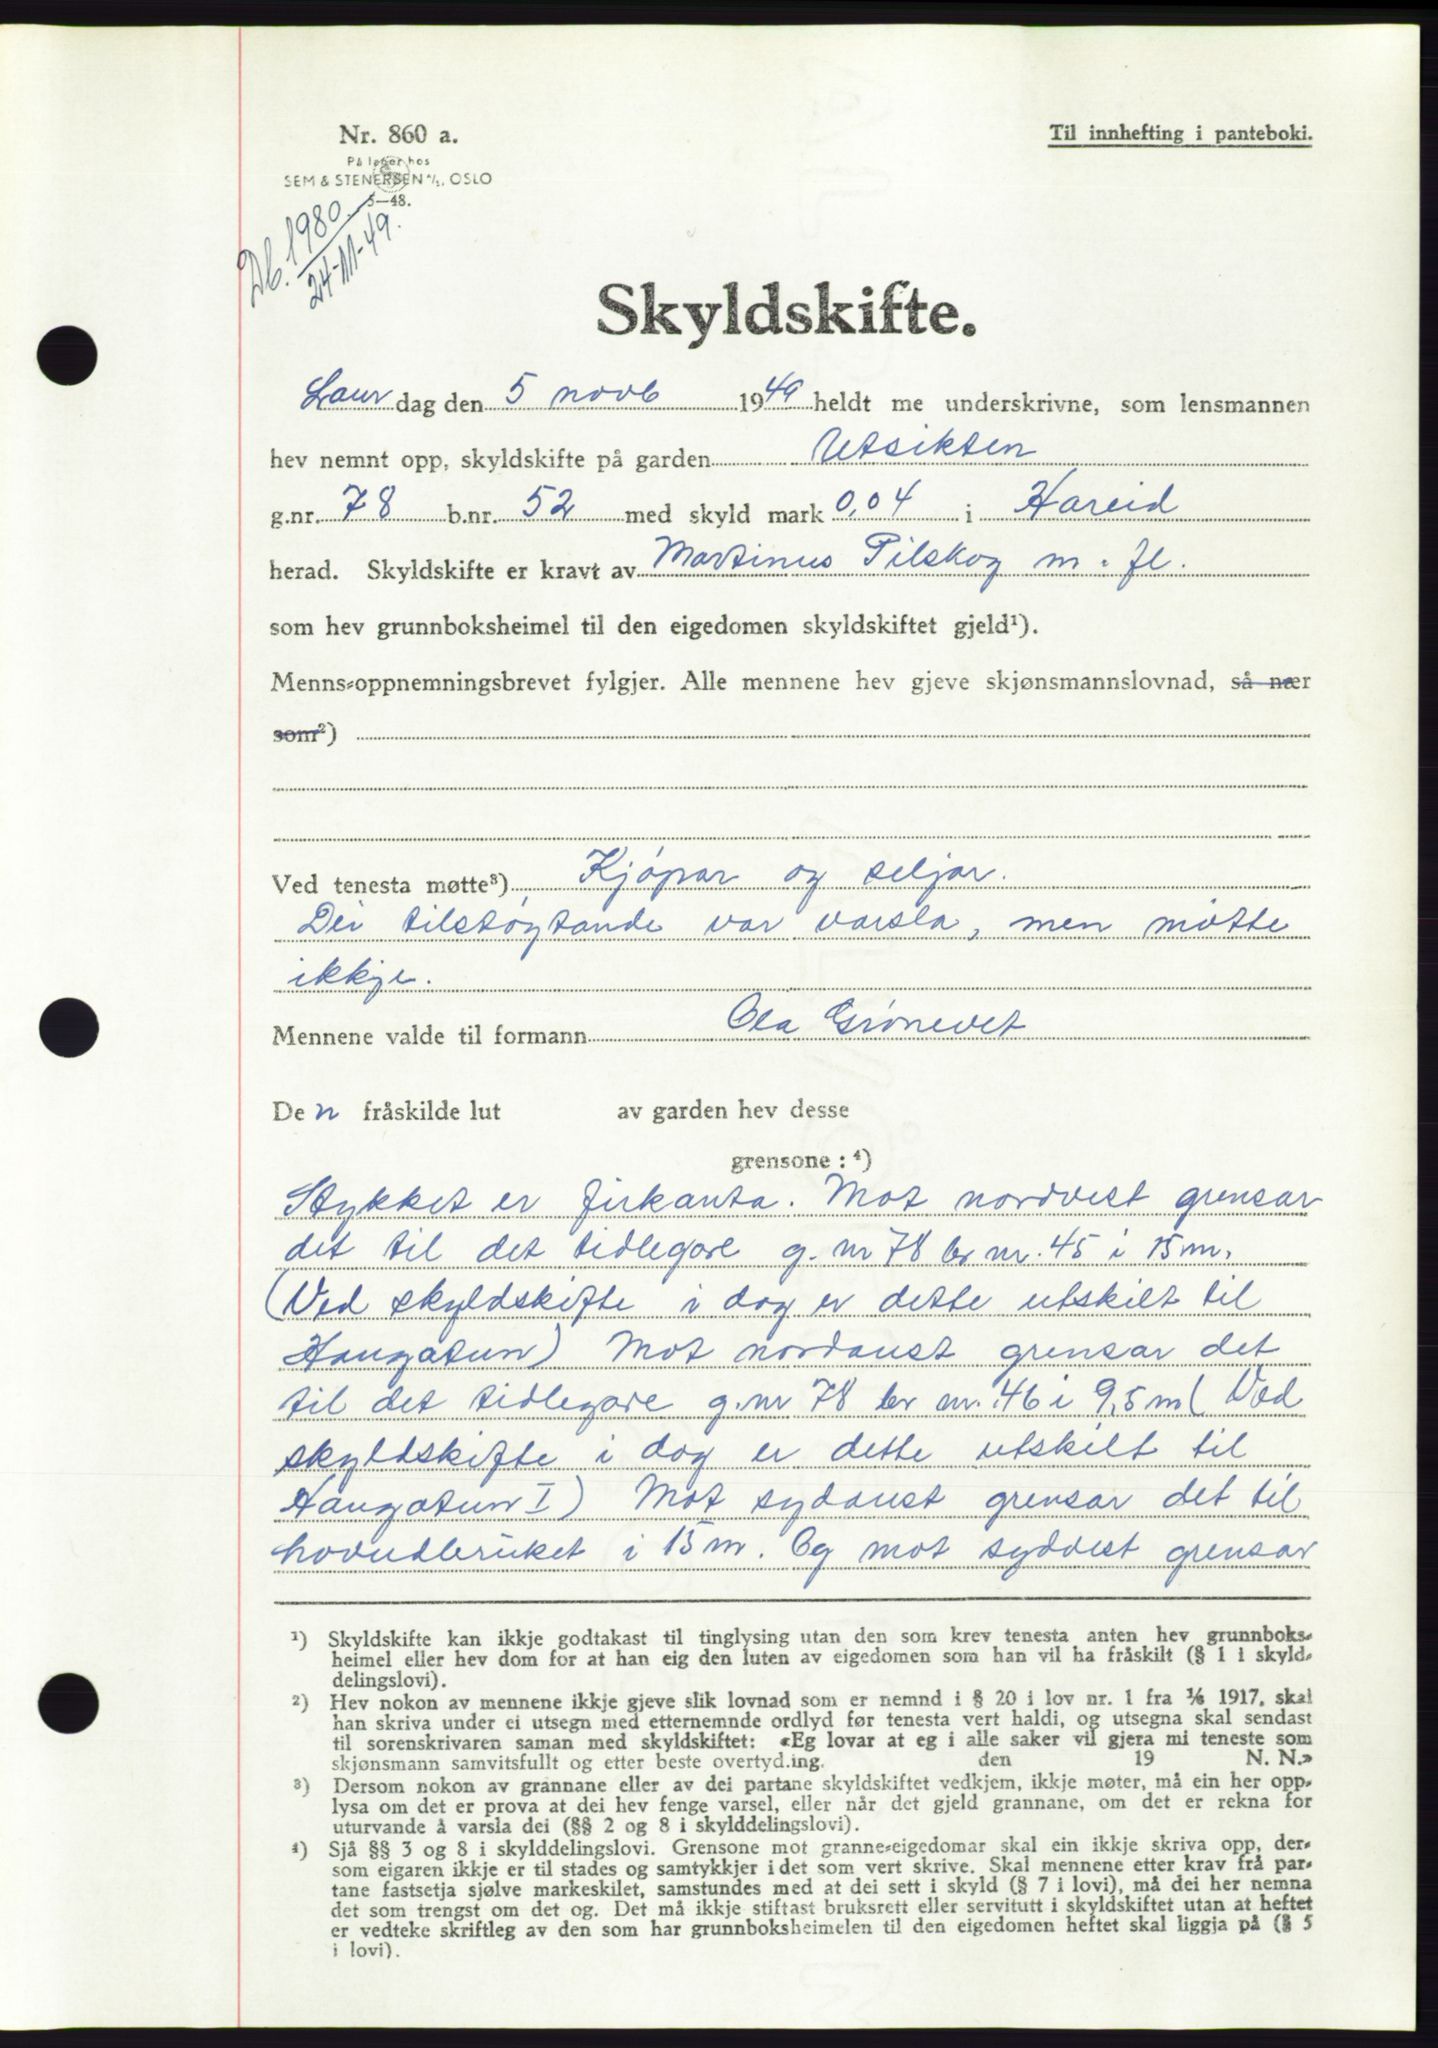 Nr. 860 a.
Til innhefting i panteboki.
På lager hos
SEM & STENERSEN A/S, OSLO
5—48.
Db. 1980
24-11-49.
Skyldskifte.
Laur dag den 5 novb 1949 heldt me underskrivne, som lensmannen
hev nemnt opp, skyldskifte på garden Utsikten
g.nr. 78 b.nr. 52 med skyld mark 0,04 i Hareid
herad. Skyldskifte er kravt av Martinus Pilskog m. fl.
som hev grunnboksheimel til den eigedomen skyldskiftet gjeld¹).
Menns-oppnemningsbrevet fylgjer. Alle mennene hev gjeve skjønsmannslovnad, så nær
som²)
Ved tenesta møtte³) Kjøpar og seljar.
Dei tilstøytande var varsla, men møtte
ikkje.
Mennene valde til formann Ola Grønevet
De n fråskilde lut av garden hev desse
grensone : ⁴)
Stykket er firkanta. Mot nordvest grensar
det til det tidlegare g. nr 78 br nr. 45 i 15 m.
(Ved skyldskifte i dag er dette utskilt til
Haugatun) Mot nordaust grensar det
til det tidlegare g.nr 78 br nr. 46 i 9,5 m ( Ved
skyldskifte i dag er dette utskilt til
Haugatun I) Mot sydaust grensar det til
hovudbruket i 15 m. Og mot sydvest grensar
¹) Skyldskifte kan ikkje godtakast til tinglysing utan den som krev tenesta anten hev grunnboks-
heimel eller hev dom for at han eig den luten av eigedomen som han vil ha fråskilt (§ 1 i skyld-
delingslovi).
²) Hev nokon av mennene ikkje gjeve slik lovnad som er nemnd i § 20 i lov nr. 1 fra 1/6 1917, skal
han skriva under ei utsegn med etternemnde ordlyd før tenesta vert haldi, og utsegna skal sendast
til sorenskrivaren saman med skyldskiftet: «Eg lovar at eg i alle saker vil gjera mi teneste som
skjønsmann samvitsfullt og etter beste overtyd.ing. den 19 N. N.»
³) Dersom nokon av grannane eller av dei partane skyldskiftet vedkjem, ikkje møter, må ein her opp-
lysa om det er prova at dei hev fenge varsel, eller når det gjeld grannane, om det er rekna for
uturvande å varsla dei (§§ 2 og 8 i skylddelingslovi).
⁴) Sjå §§ 3 og 8 i skylddelingslovi. Grensone mot granne-eigedomar skal ein ikkje skriva opp, der-
som eigaren ikkje er til stades og samtykkjer i det som vert skrive. Skal mennene etter krav frå par-
tane fastsetja sjølve markeskilet, samstundes med at dei sett i skyld (§ 7 i lovi), må dei her nemna
det som trengst om det og. Det må ikkje stiftast bruksrett eller servitutt i skyldskiftet utan at heftet
er vedteke skriftleg av den som har grunnboksheimelen til den eigedomen heftet skal liggja på (§ 5
i lovi).